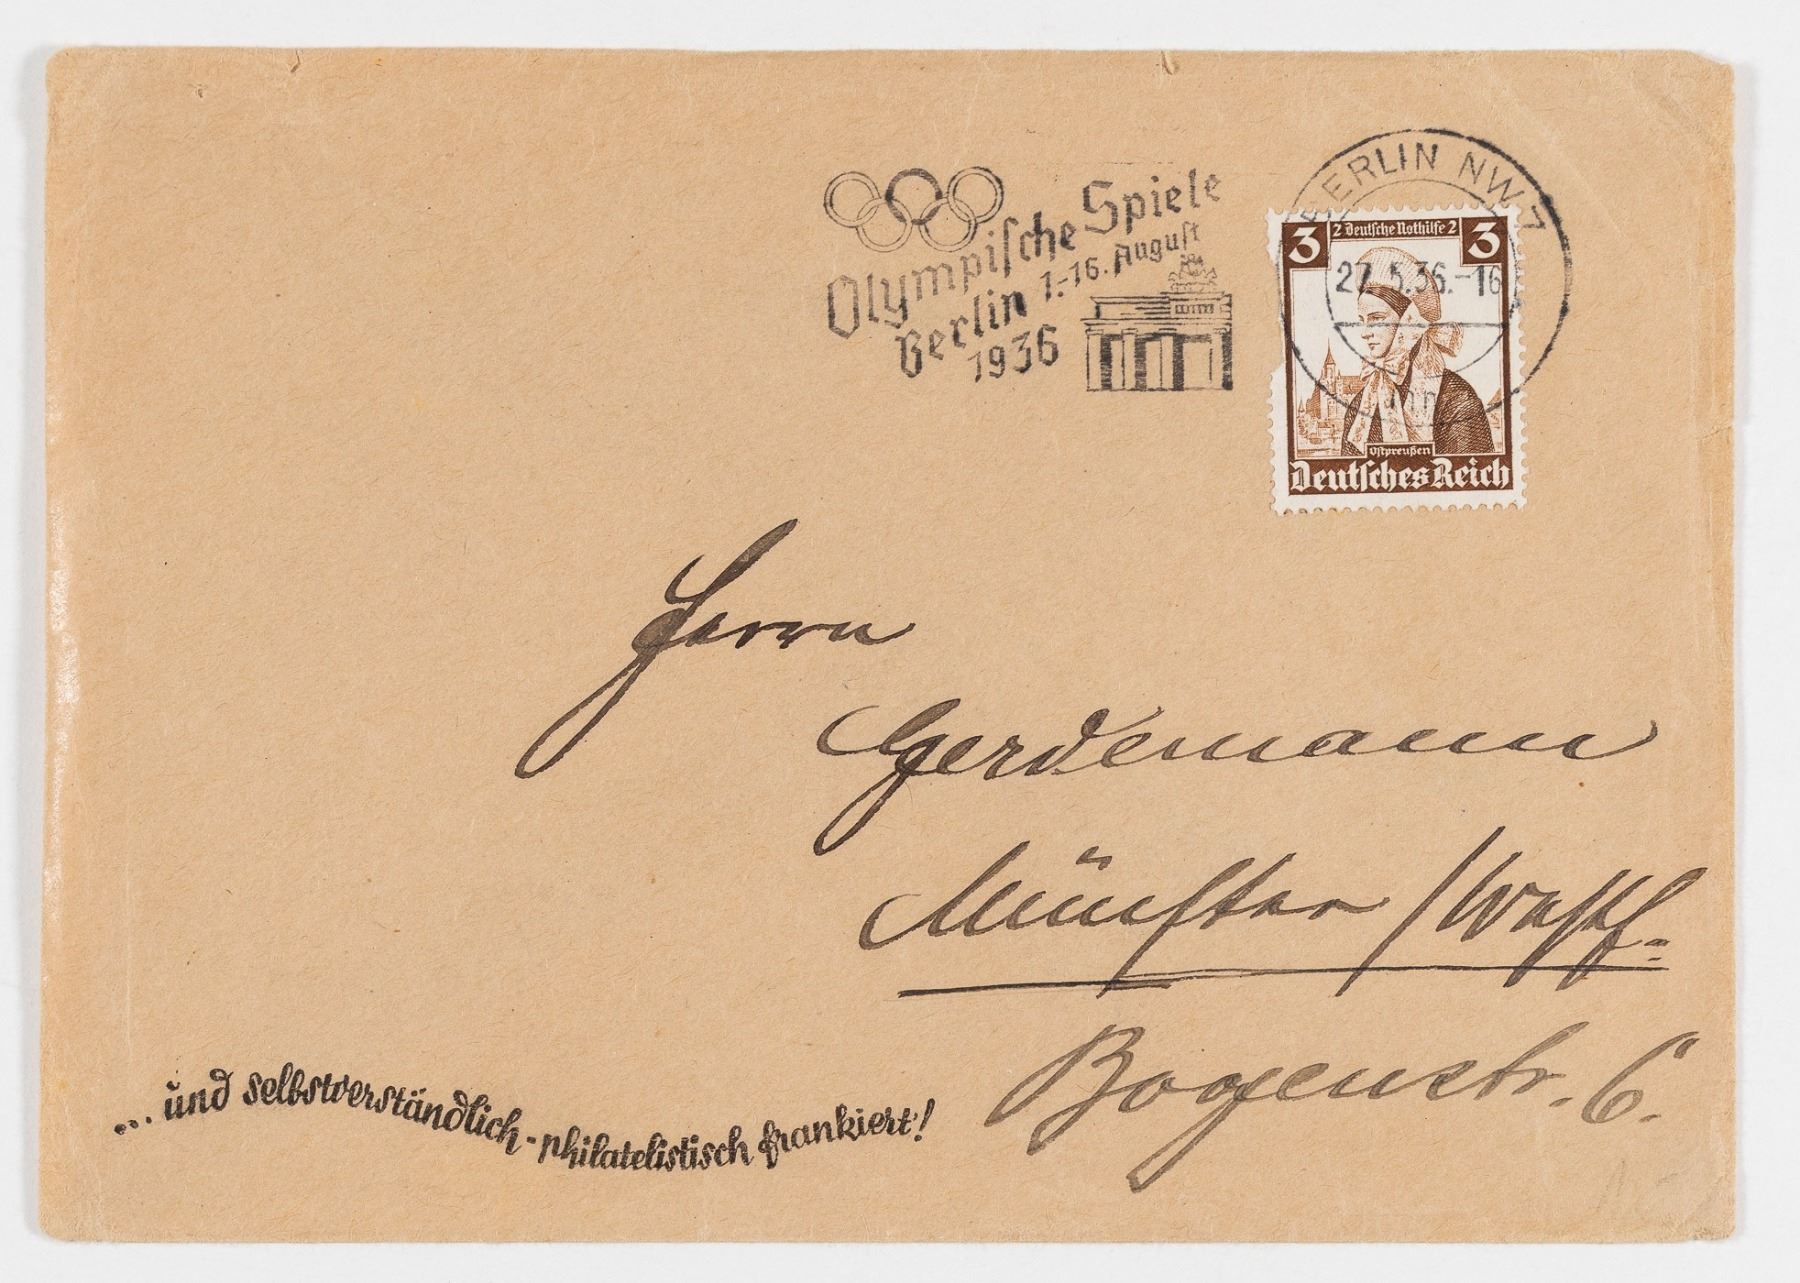 Olympische Spiele
Berlin 1.-16. August
1936
BERLIN NW 7
27.5.36.-16
3 2 Deutsche Nothilfe 2 3
Ostpreußen
Deutsches Reich
Herrn
Gerdemann
Münster / Westf.
Bogenstr. 6.
... und selbstverständlich - philatelistisch frankiert!